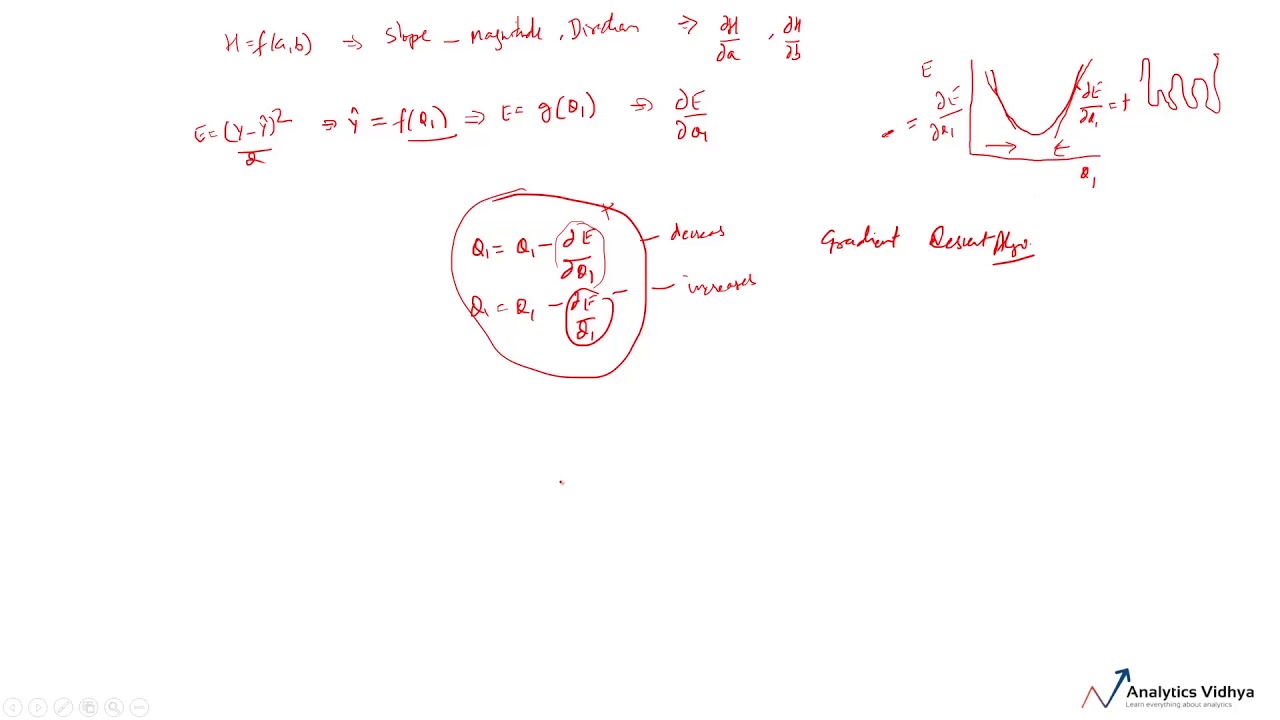 H=f(a,b) ⇒ Slope - Magnitude, Direction ⇒ ∂H/∂a, ∂H/∂b
E=(Y-Ŷ)²/2 ⇒ Ŷ = f(θ₁) ⇒ E= g(θ₁) ⇒ ∂E/∂θ₁
E
- = ∂E/∂θ₁
∂E/∂θ₁ = +
θ₁
θ₁ = θ₁ - ∂E/∂θ₁ + - decreas
θ₁ = θ₁ - ∂E/θ₁ - - increases
Gradient Descent Algo.
Analytics Vidhya
Learn everything about analytics